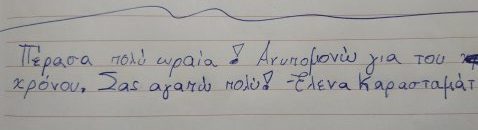 Πέρασα πολύ ωραία! Ανυπομονώ για του
χρόνου. Σας αγαπώ πολύ! -Έλενα Καρασταμάτ